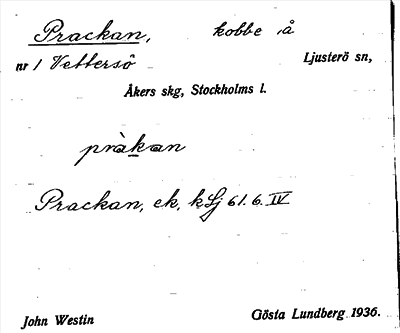 Prackan, kobbe å
nr 1 Vettersö Ljusterö sn,
Åkers skg, Stockholms l.
pràkan
Prackan, ek. k Lj 61. 6. IV
John Westin Gösta Lundberg 1936.